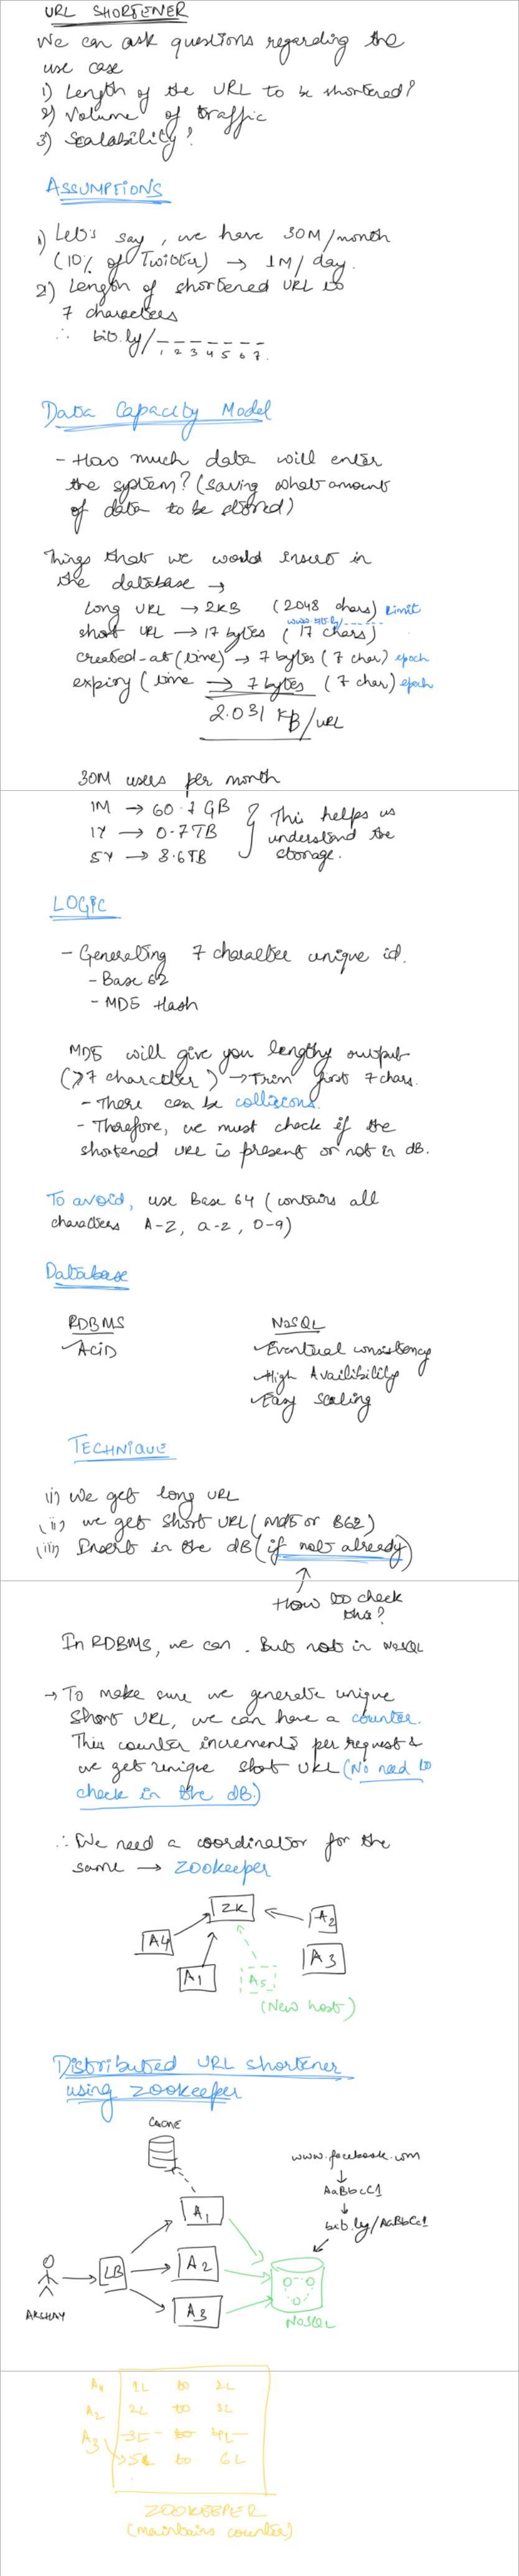 URL SHORTENER
We can ask questions regarding the
use case
1) Length of the URL to be shortened?
2) Volume of traffic
3) Scalability?
ASSUMPTIONS
1) Let's say, we have 30M/month
(10% of Twitter) → 1M/day.
2) Length of shortened URL is
7 characters
∴ bit.ly/_ _ _ _ _ _ _
1 2 3 4 5 6 7.
Data Capacity Model
- How much data will enter
the system? (saving what amount
of data to be stored)
Things that we would insert in
the database →
Long URL → 2KB (2048 chars) limit
short URL → 17 bytes (17 chars)
created-at (time) → 7 bytes (7 char) epoch
expiry (time → 7 bytes (7 char) epoch
2.031 KB/URL
30M users per month
1M → 60.7 GB
1Y → 0.7TB
5Y → 3.6TB
This helps us
understand the
storage.
LOGIC
- Generating 7 character unique id.
- Base 62
- MD5 Hash
MD5 will give you lengthy output
(>7 character) → Trim first 7 chars.
- There can be collisions.
- Therefore, we must check if the
shortened URL is present or not in dB.
To avoid, use Base 64 (contains all
characters A-Z, a-z, 0-9)
Database
RDBMS NoSQL
ACID Eventual consistency
High Availibility
Easy scaling
TECHNIQUE
(i) We get long URL
(ii) we get short URL (md5 or B62)
(iii) Insert in the dB (if not already)
How to check
this?
In RDBMS, we can. But not in NoSQL
→ To make sure we generate unique
short URL, we can have a counter.
This counter increments per request &
we get unique short URL (No need to
check in the dB.)
∴ We need a coordinator for the
same → zookeeper
ZK
A4 A2
A1 A5 A3
(New host)
Distributed URL shortener
using zookeeper
CACHE
www.facebook.com
↓
AaBbcC1
↓
bit.ly/AaBbCc1
A1
LB A2
A3
AKSHAY
NoSQL
A1 1L to 2L
A2 2L to 3L
A3 3L to 4L
5L to 6L
ZOOKEEPER
(maintains counter)